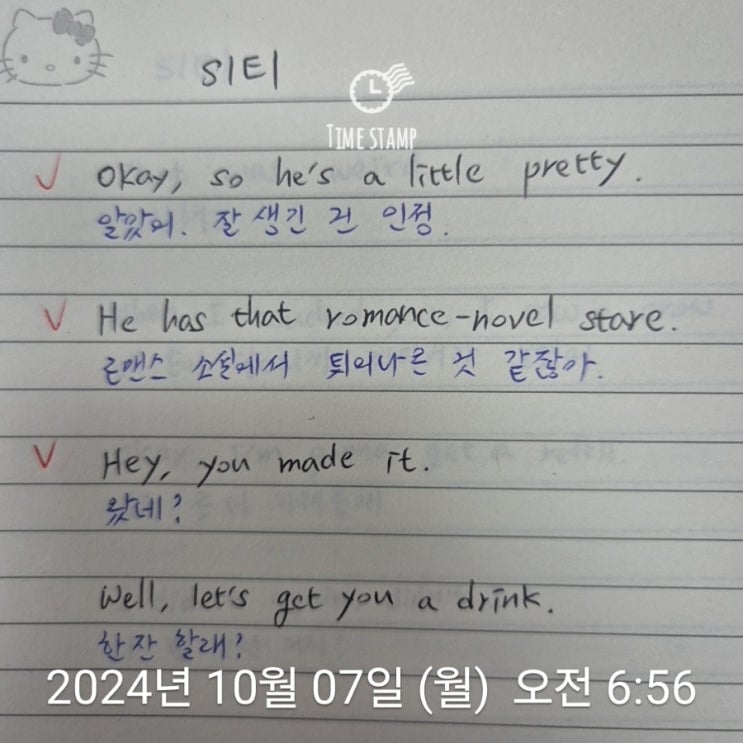 S1E1
TIME STAMP
Okay, so he's a little pretty.
알맜어. 잘 생긴 건 인정.
He has that romance-novel stare.
로맨스 소설에서 튀어나온 것 같잖아.
Hey, you made it.
왔네?
Well, let's get you a drink.
한잔 할래?
2024년 10월 07일 (월) 오전 6:56